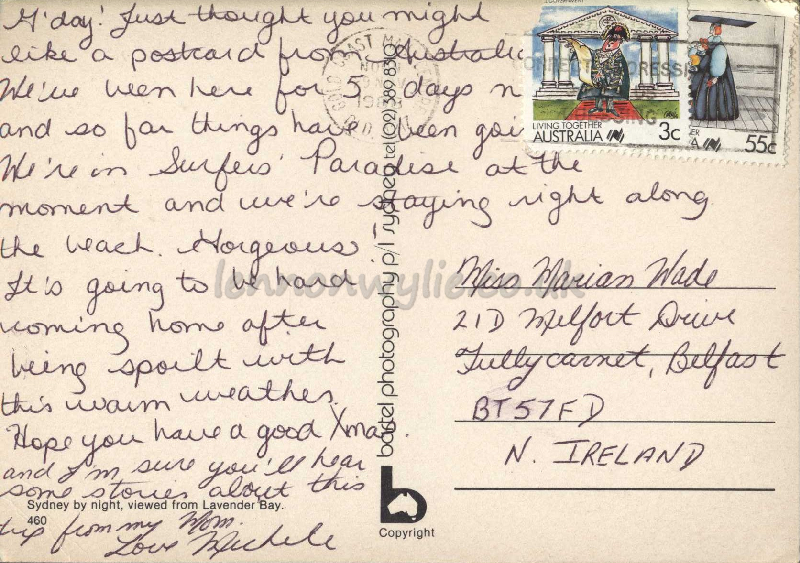 G'day! Just thought you might
like a postcard from Australia
We've been here for 5 days
and so far things have been
We're in Surfers' Paradise at the
moment and we're staying right along
the beach. Gorgeous!
It's going to be hard
coming home after
being spoilt with
this warm weather.
Hope you have a good Xmas
and I'm sure you'll hear
some stories about this
trip from my Mom.
Love Michele
Sydney by night, viewed from Lavender Bay.
460
bartel photography p/l sydney tel (02) 389 8310
b
Copyright
GOLD COAST
LIVING TOGETHER
AUSTRALIA 3c
55c
Miss Marian Wade
21D Melfort Drive
Tullycarnet, Belfast
BT57FD
N. IRELAND
lennonwylie.co.uk